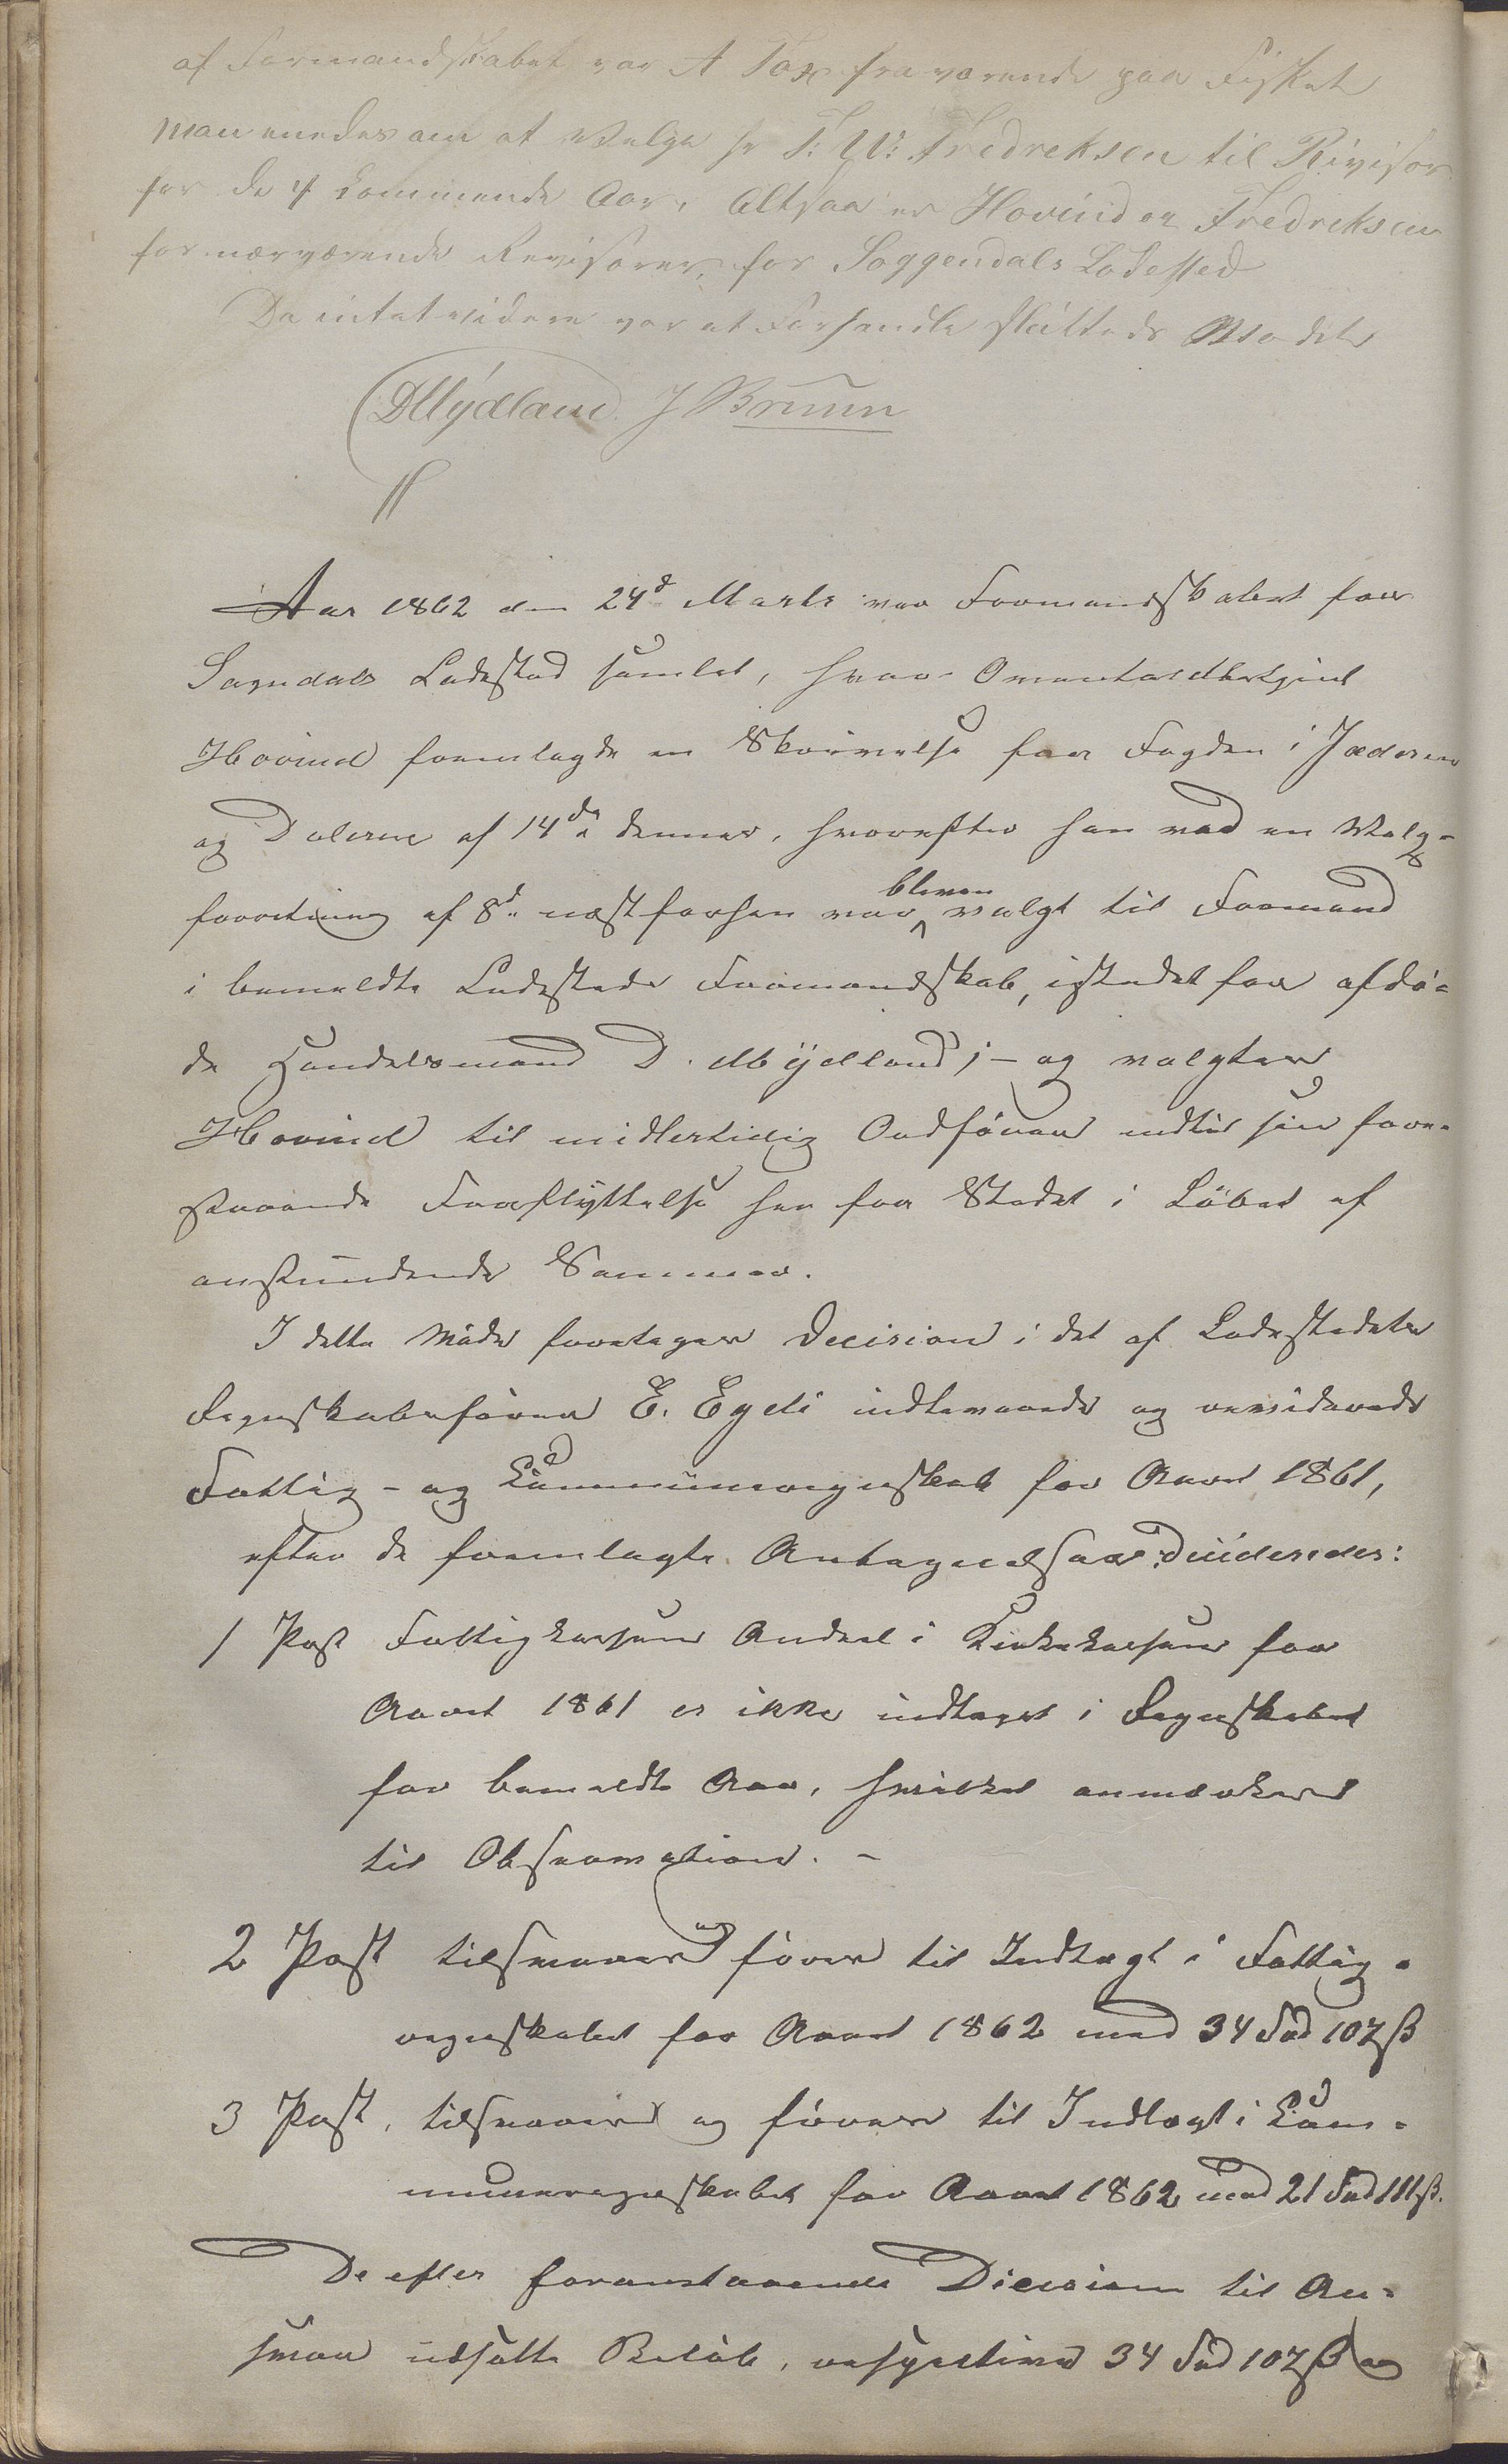 af Formandskabet var A Tox fraværende paa Fisket
man enedes om at Velge hr T: W: Fredreksen til Rivisor
for de 4 kommende Aar, Altsaa er Hovind og Fredreksen
for nærværende Revisorer for Soggendals Ladested
Da intet videre var at Forhandle sluttede Mødet
DMydland J Bruun
Aar 1862 den 24d Marts var Formandskabet for
Sogndals Ladested samlet, hvor
Hovind fremlagde en Skrivelse fra Fogden i Jæderen
og Dalerne af 14de dennes, hvorefter han ved en Valg-
forretning af 8de næstforhen var bleven valgt til Formand
i bemeldte Ladesteds Formandskab, istedet for afdø-
de Handelsmand D. Mydland; – og valgtes
Hovind til midlertidig Ordfører indtil sin fore-
staaende Fraflyttelse her fra Stedet i Løbet af
anstundende Sommer.
I dette Møde foretoges Decision i det af Ladestedets
Regnskabsfører E. Egdi indleverede og reviderede
Fattig- og Kommuneregnskab for Aaret 1861,
efter de fremlagte Antegnelser:
1 Post Fattigkassens Andeel i Kirkekassen for
Aaret 1861 er ikke indtaget i Regnskabet
for bemeldte Aar, hvilket anmærkes
til Observation. –
2 Post tilsvares og føres til Indtægt i Fattig-
regnskabet for Aaret 1862 med 34 Spd 107 ß
3 Post, tilsvares og føres til Indtægt i Kom-
muneregnskabet for Aaret 1862 med 21 Spd 111 ß.
De efter foranstaaende Dicision til An-
svar udsatte Beløb, respective 34 Spd 107 ß og